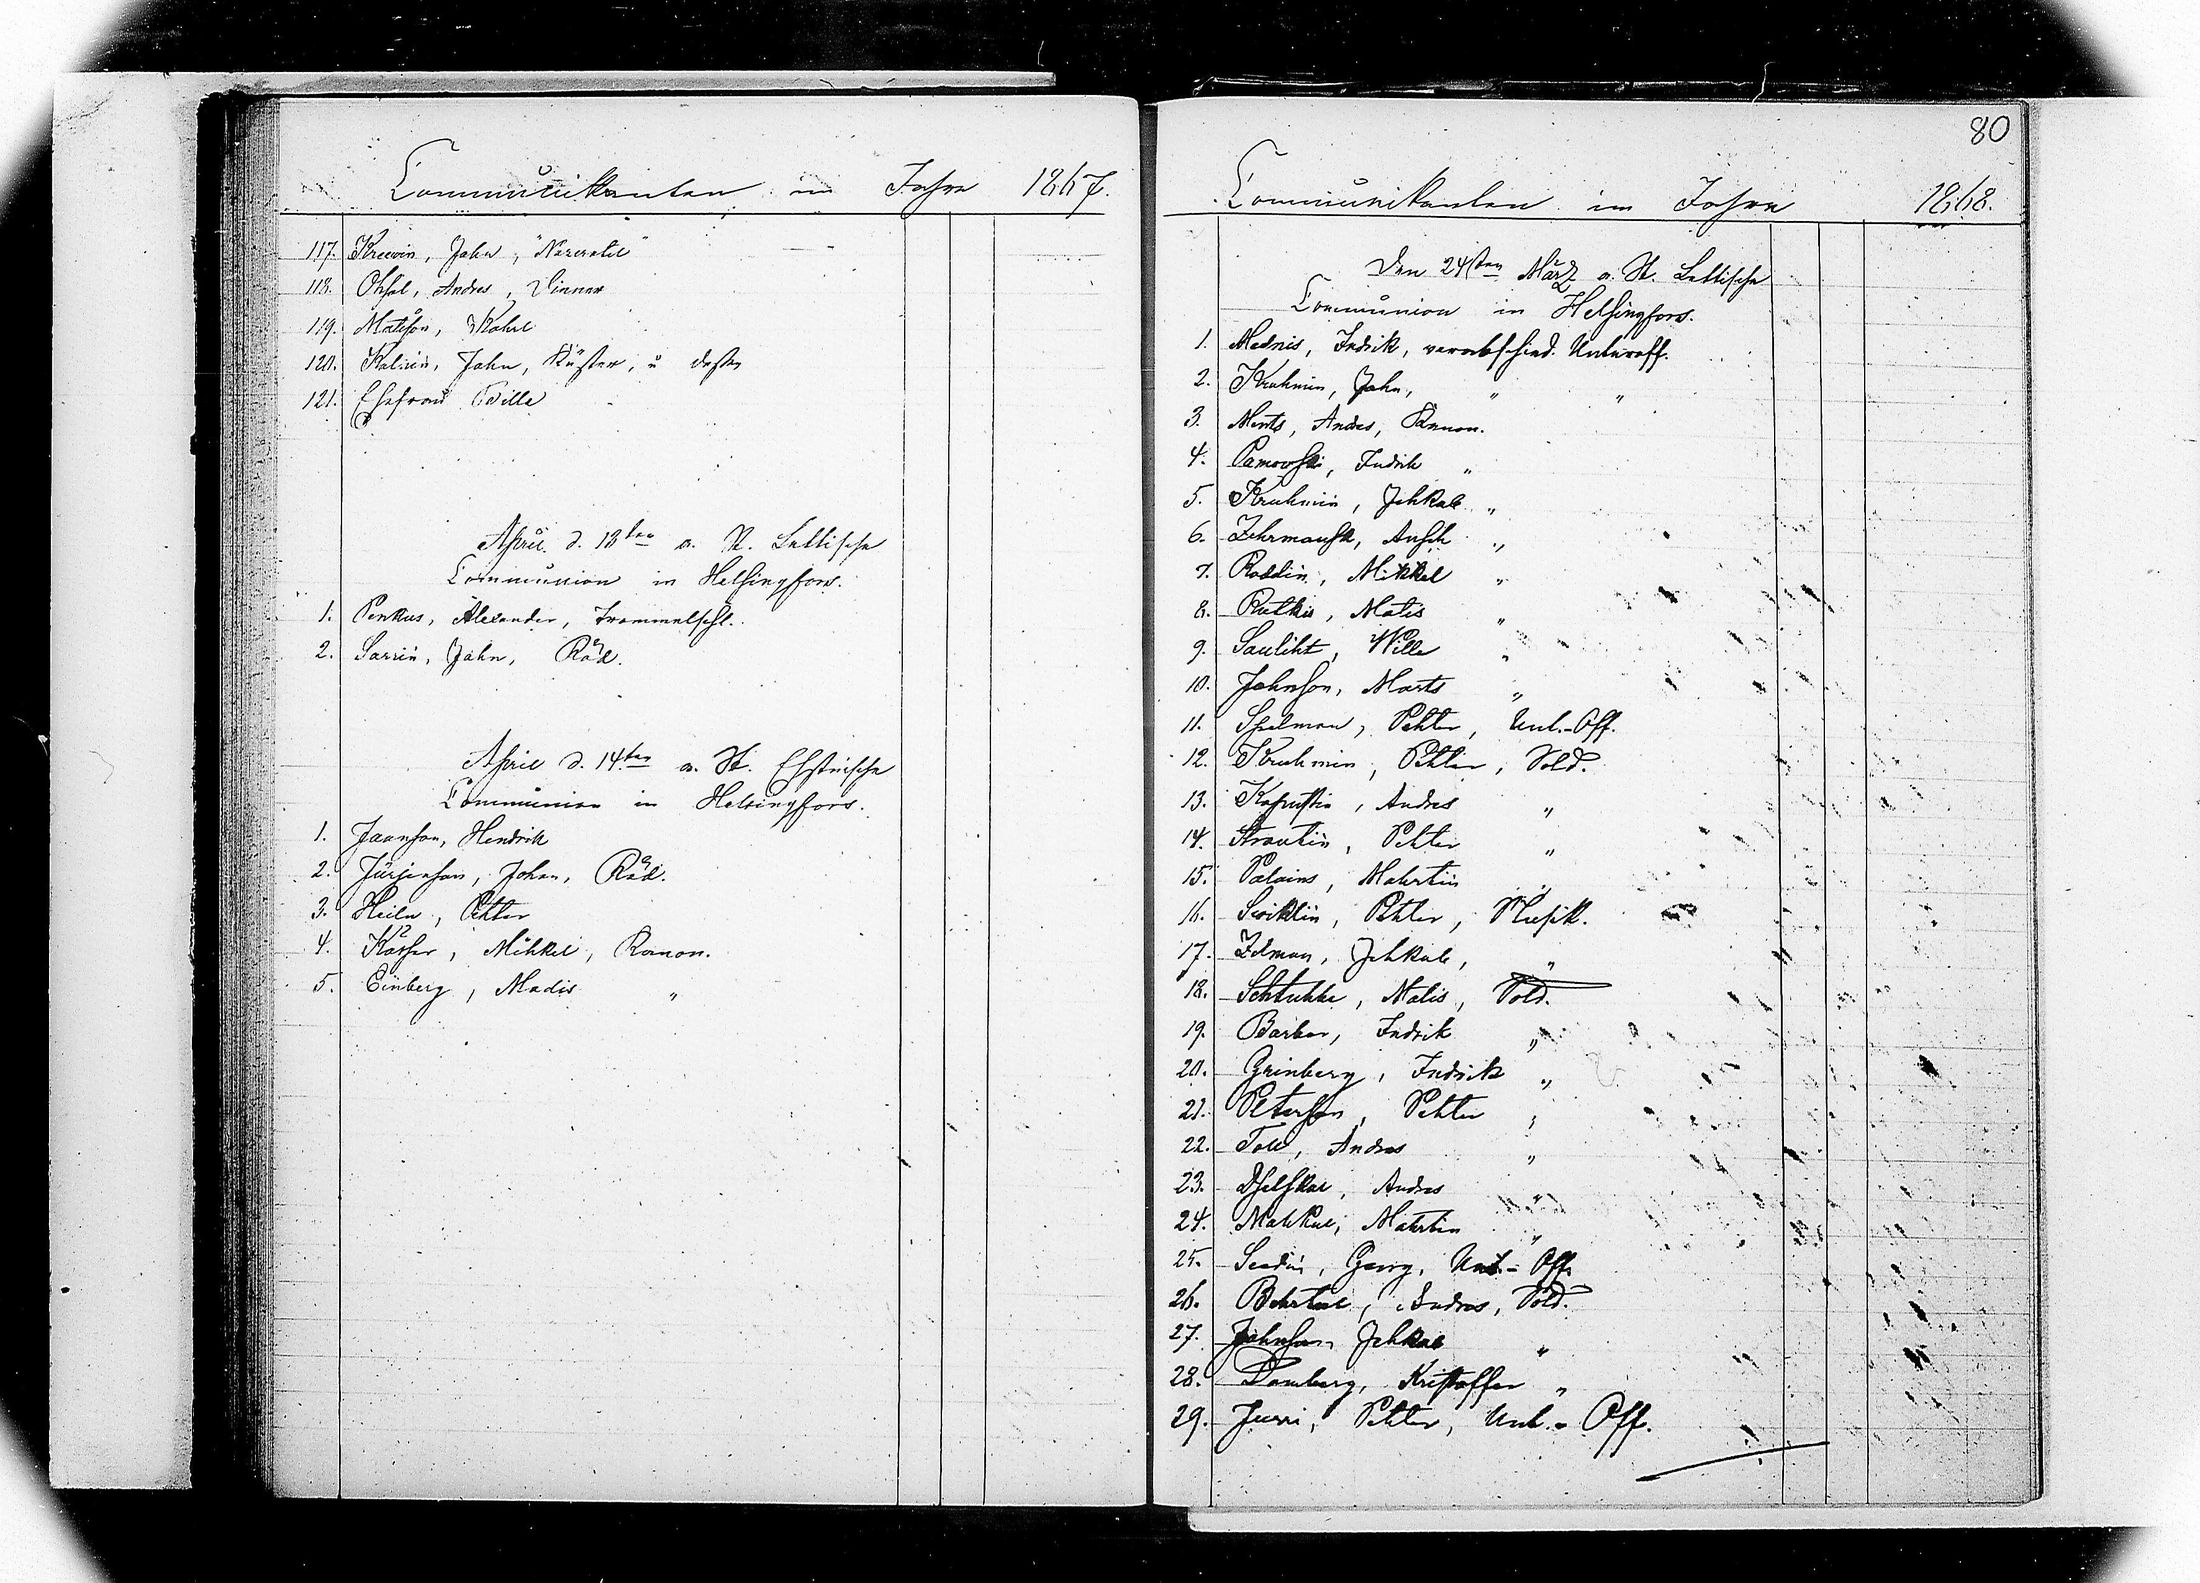 Communikanten im Jahre 1867.
117. Kreewin, Jahn,
118. Ohsol, Andres,
119. Matison, Kahrl
120. Kalnin, Jahn, Küster, u dessen
121. Ehefrau Wille
April d. 13ten a. St. Lettische
Communion in Helsingfors.
1. Penkus, Alexander, Trommelschl.
2. Sarrin, Jahn,
April d. 14ten a. St. Ehstnische
Communion in Helsingfors.
1. Jaanson, Hendrik
2. Jürjenson, Johan,
3. Heiln, Pehter
4. Mihkel, Kanon.
5. Einberg, Madis "
80
Communikanten im Jahre 1868.
Den 24sten März a. St. Lettische
Communion in Helsingfors.
1. Mednis, Indrik, verabschied. Unteroff.
2. Kruhmin, Jahn, " "
3. Ments, Andres, Kanon.
4. Indrik "
5. Kruhmin, Jehkab "
6. Ansch "
7. Raddin, Mikkel "
8. Rutkis, Matis "
9. Sauliht, Wille "
10. Jahnson, Marts "
11. Spelman, Pehter, Unt.-Off.
12. Kruhmin, Pehter, Sold.
13. Kapustin, Andres "
14. Strautin, Pehter "
15. Mahrtin "
16. Swiklin, Pehter, Musik.
17. Jehkab, "
18. Matis, Sold.
19. Barbar, Indrik "
20. Grinberg, Indrik "
21. Peterson, Pehter "
22. Andres "
23. Andres "
24. Mahrtin "
25. Georg, Unt.-Off.
26. Andres, Sold.
27. Jahnson, Jehkab "
28. Damberg, Kristoffer "
29. Jurri, Pehter, Unt.-Off.